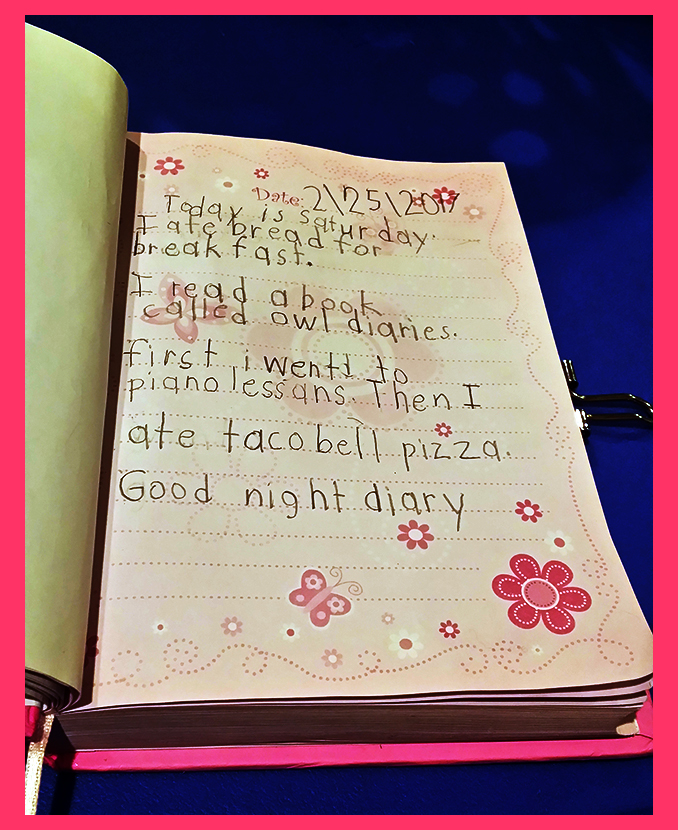 Date: 2\25\2017
Today is saturday.
I ate bread for
breakfast.
I read a book
called owl diaries.
first i wentt to
piano lessans. Then I
ate taco bell pizza.
Good night diary